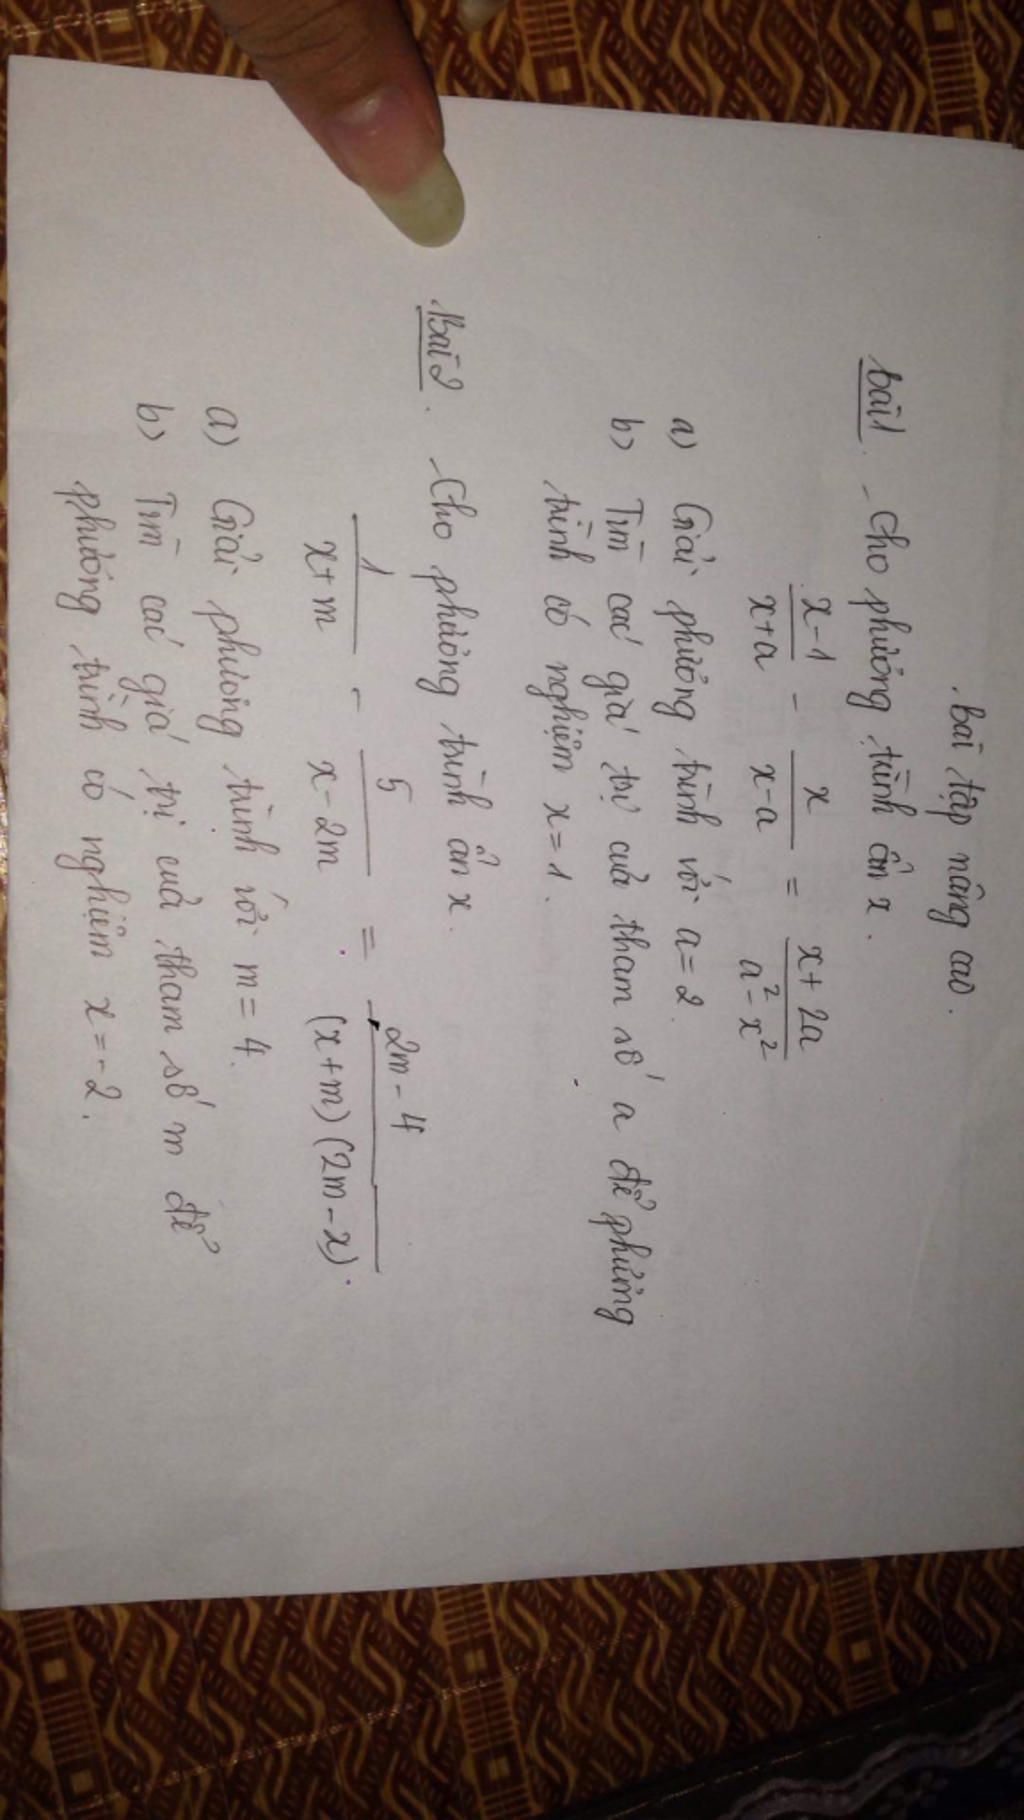 Bài tập nâng cao.
Bài 1. Cho phương trình ẩn x.
\frac{x-1}{x+a} - \frac{x}{x-a} = \frac{x+2a}{a^2-x^2}
a) Giải phương trình với a=2.
b) Tìm các giá trị của tham số a để phương
trình có nghiệm x=1.
Bài 2. Cho phương trình ẩn x.
\frac{1}{x+m} - \frac{5}{x-2m} = \frac{2m-4}{(x+m)(2m-x)}.
a) Giải phương trình với m=4.
b) Tìm các giá trị của tham số m để
phương trình có nghiệm x=-2.